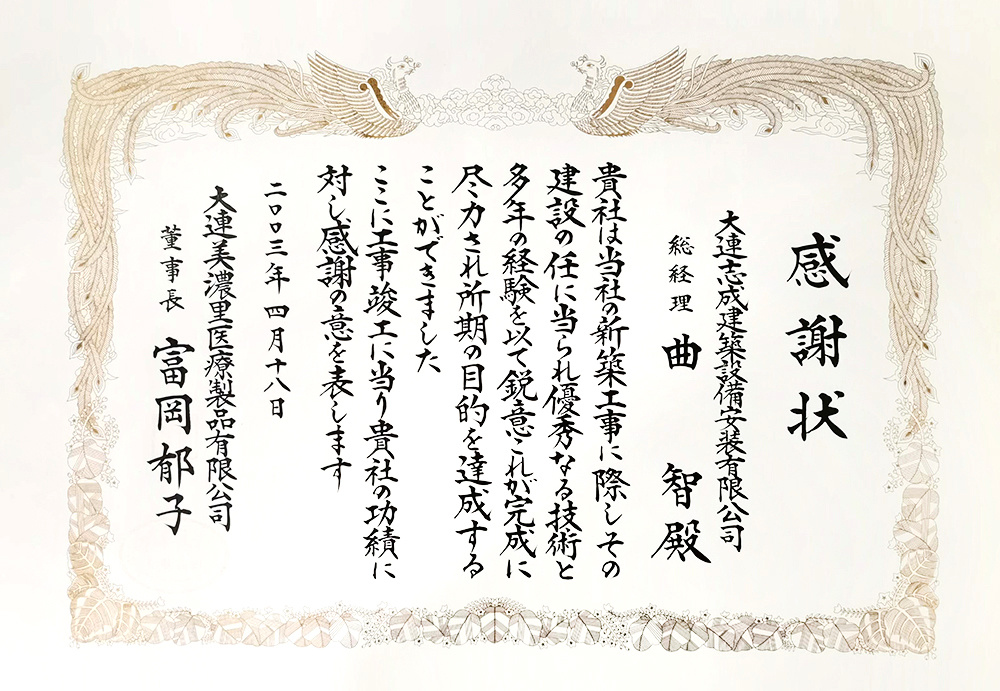 感謝状
大連志成建築設備安装有限公司
総経理 曲 智殿
貴社は当社の新築工事に際しその
建設の任に当られ優秀なる技術と
多年の経験を以て鋭意これが完成に
尽力され所期の目的を達成する
ことができました
ここに工事竣工に当り貴社の功績に
対し感謝の意を表します
二〇〇三年四月十八日
大連美濃里医療製品有限公司
董事長 富岡郁子